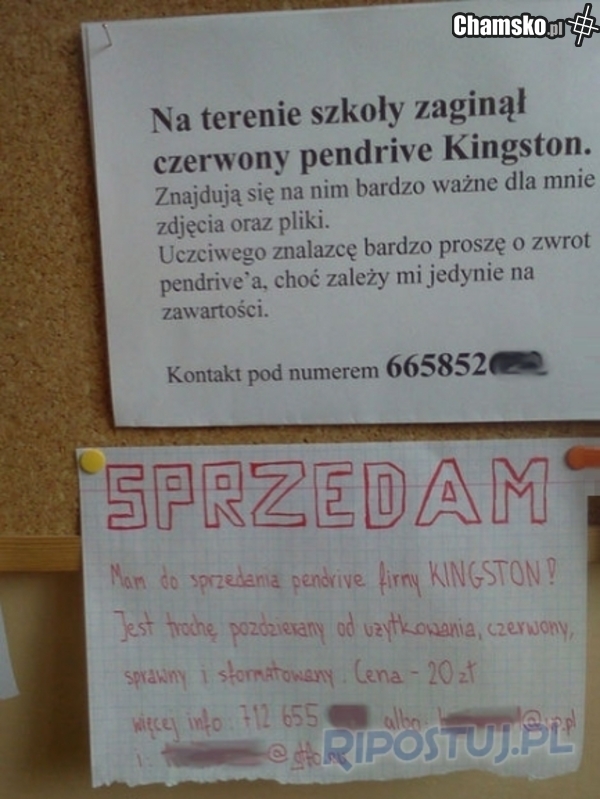 Chamsko.pl
Na terenie szkoły zaginął
czerwony pendrive Kingston.
Znajdują się na nim bardzo ważne dla mnie
zdjęcia oraz pliki.
Uczciwego znalazcę bardzo proszę o zwrot
pendrive'a, choć zależy mi jedynie na
zawartości.
Kontakt pod numerem 665852
SPRZEDAM
Mam do sprzedania pendrive firmy KINGSTON!
Jest trochę pozdzierany od użytkowania, czerwony,
sprawny i sformatowany. Cena - 20 zł
więcej info: 712 655 albo: @vp.pl
i: @
RIPOSTUJ.PL